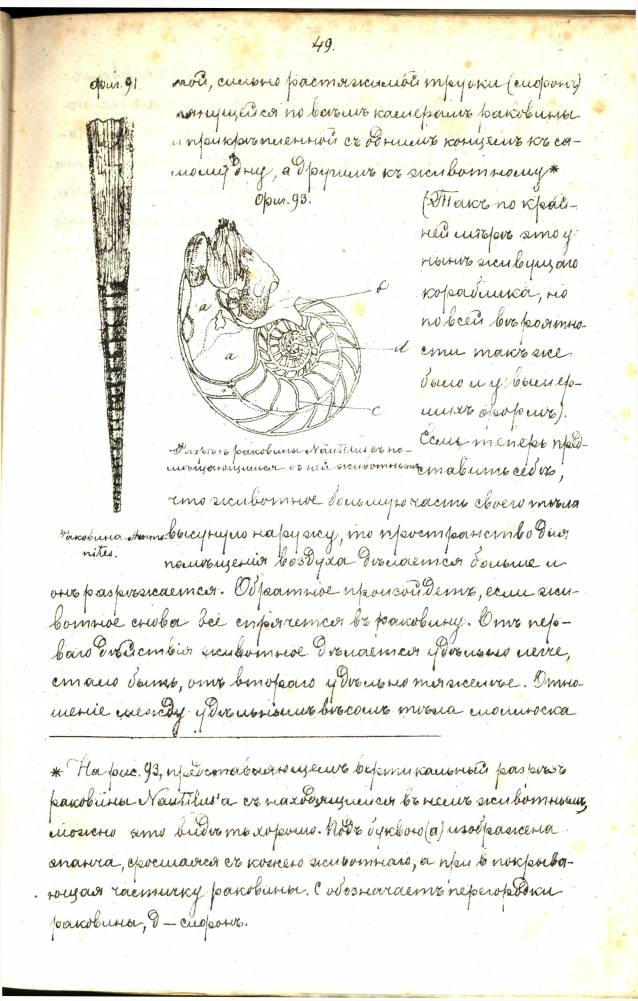 49.
фиг. 91.
мой, сильно растяжимой трубки (сифонъ)
тянущейся по всѣмъ камерамъ раковины
и прикрѣпленной съ однимъ концемъ къ са-
мому дну, а другимъ къ животному*
Фиг. 93.
(Такъ по край-
ней мѣрѣ это у
нынѣ живущаго
кораблика, но
по всей вѣроятно-
сти такъ же
было и у вымер-
шихъ формъ).
Если теперь пред-
ставить себѣ,
a
a
b
d
c
Разрѣзъ раковины Nautilus съ по-
мѣщающимся въ ней животнымъ
Раковина Ammo-
nites.
что животное большую часть своего тѣла
высунуло наружу, то пространство для
помѣщенія воздуха дѣлается больше и
онъ разрѣжается. Обратное произойдетъ, если жи-
вотное снова всё спрячется въ раковину. Отъ пер-
ваго дѣйствія животное дѣлается удѣльно легче,
стало быть, отъ втораго удѣльно тяжелѣе. Отно-
шеніе между удѣльнымъ вѣсомъ тѣла моллюска
* На рис. 93, представляющемъ вертикальный разрѣзъ
раковины Nautilus'а съ находящимся въ немъ животнымъ,
можно это видѣть хорошо. Подъ буквою (а) изображена
епанча, сросшаяся съ кожею животнаго, а при в покрыва-
ющая частичку раковины. С обозначаетъ перегородки
раковины, д — сифонъ.